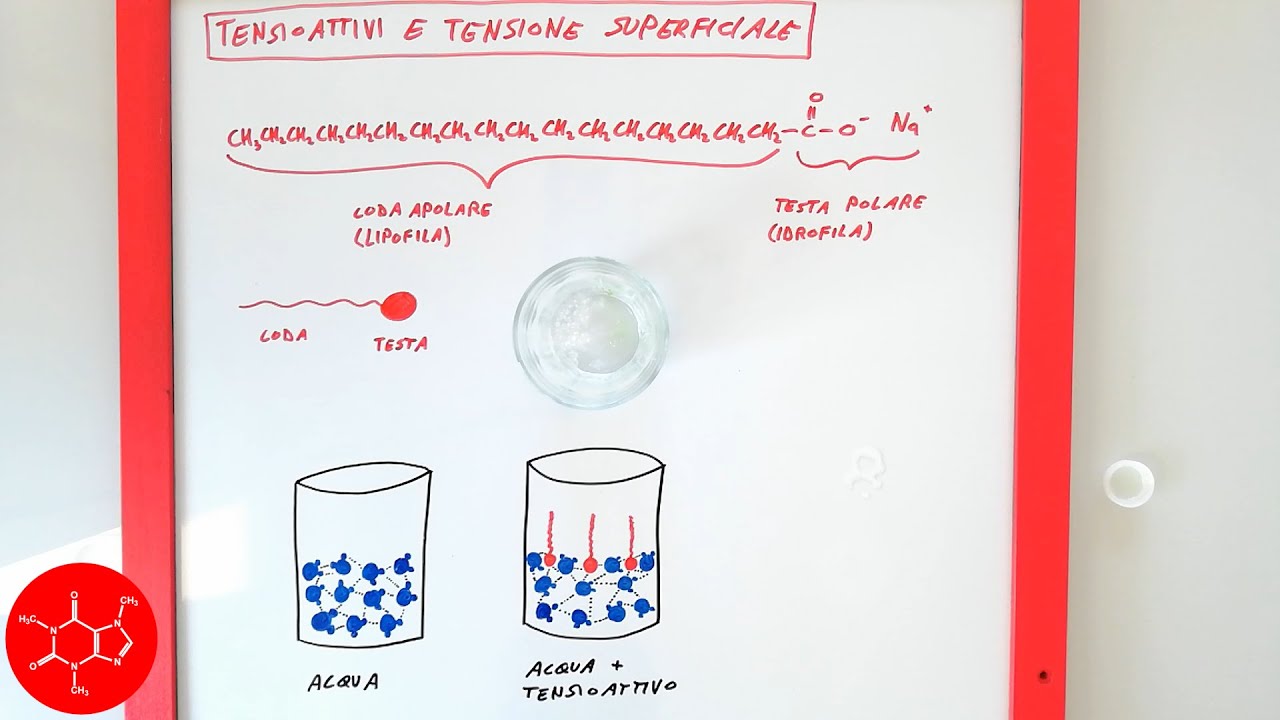 TENSIOATTIVI E TENSIONE SUPERFICIALE
O
CH₃CH₂CH₂CH₂CH₂CH₂CH₂CH₂CH₂CH₂CH₂CH₂CH₂CH₂CH₂CH₂CH₂-C-O⁻ Na⁺
CODA APOLARE
(LIPOFILA)
TESTA POLARE
(IDROFILA)
CODA
TESTA
ACQUA
ACQUA +
TENSIOATTIVO
O
CH₃
H₃C
N
N
O
N
N
CH₃